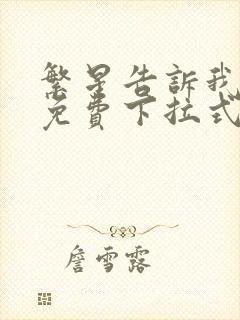 繁星告訴我
免費下拉式
詹雪露